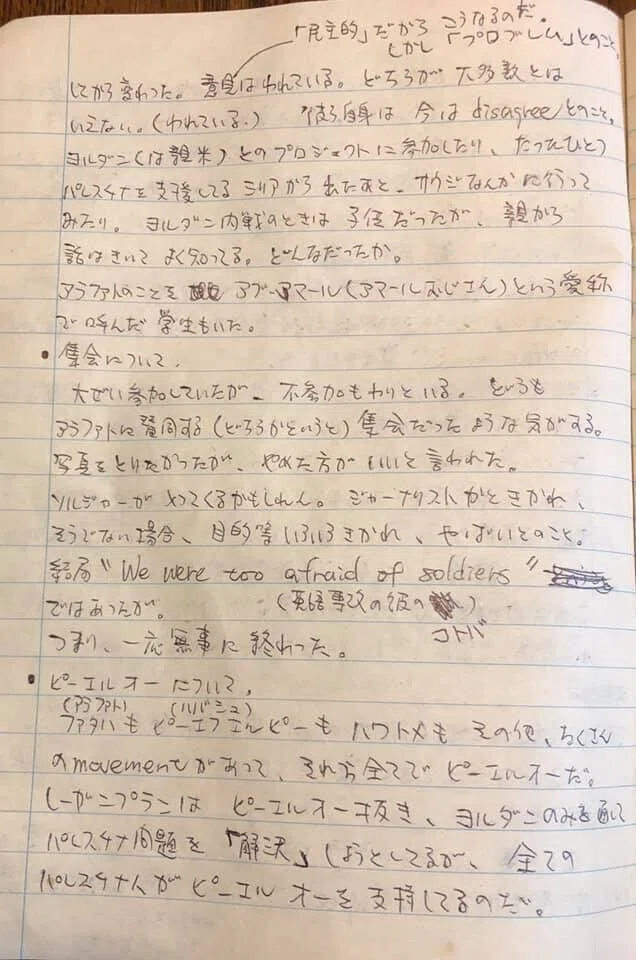 「民主的」だから こうなるのだ。
しかし 「プロブレム」とのこと。
してから変わった。意見はわれている。どちらが大多数とは
いえない。(われている。) 彼ら自身は 今は disagree とのこと。
ヨルダン(は親米)とのプロジェクトに参加したり、たったひとつ
パレスチナを支援してるシリアから出たあと、サウジなんかに行って
みたり。ヨルダン内戦のときは 子供だったが、親から
話はきいて よく知ってる。どんなだったか。
アラファトのことを アブ・アマール(アマールおじさん)という愛称
で呼んだ学生もいた。
• 集会について、
大ぜい参加していたが、不参加もわりといる。どうも
アラファトに賛同する(どちらかというと)集会だったような気がする。
写真をとりたかったが、やめた方がいいと言われた。
ソルジャーが やってくるかもしれん。ジャーナリストかときかれ、
そうでない場合、目的等いろいろきかれ、やばいとのこと。
結局 “We were too afraid of soldiers”
ではあったが。 (英語専攻の彼の)
コトバ
つまり、一応無事に終わった。
• ピーエルオーについて、
(アラファト) (ハバシュ)
ファタハも ピーエフエルピーも ハワトメも その他、たくさん
のmovementがあって、それら全てで ピーエルオーだ。
レーガンプランは ピーエルオー抜き、ヨルダンのみを通して
パレスチナ問題を 「解決」しようとしてるが、全ての
パレスチナ人が ピーエルオーを支持してるのだ。